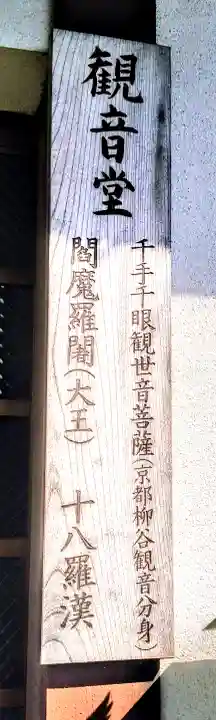 観音堂
千手千眼観世音菩薩(京都柳谷観音分身)
閻魔羅闍(大王)　十八羅漢